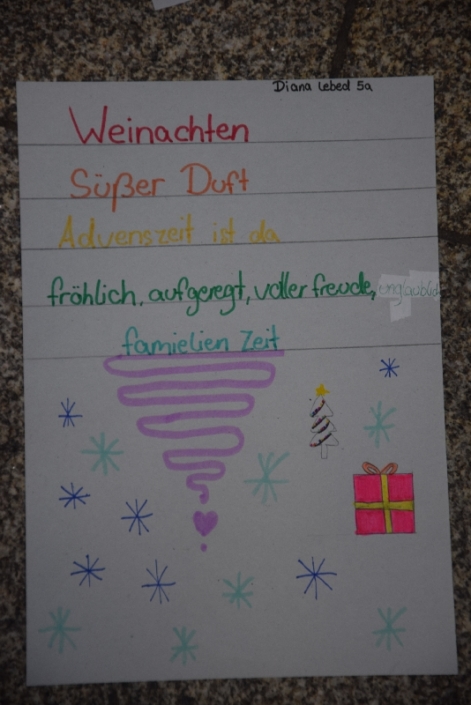 Diana Lebed 5a
Weinachten
Süßer Duft
Advenszeit ist da
fröhlich, aufgeregt, voller freude,
famielien Zeit